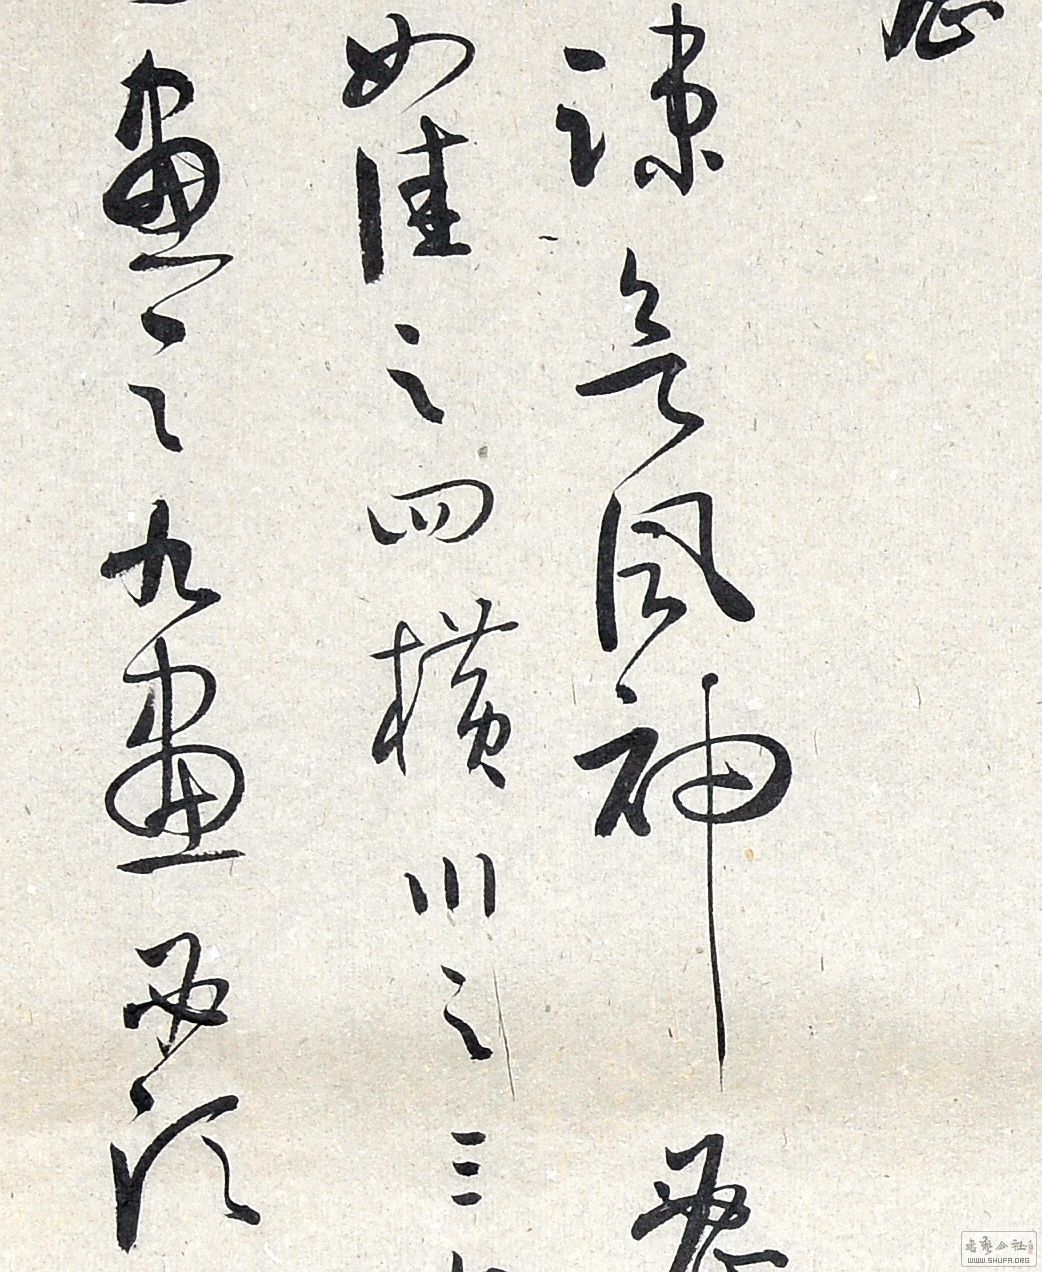 疎無風神
如隹之四橫川之三
畫之九畫須
書藝公社
WWW.SHUFA.ORG